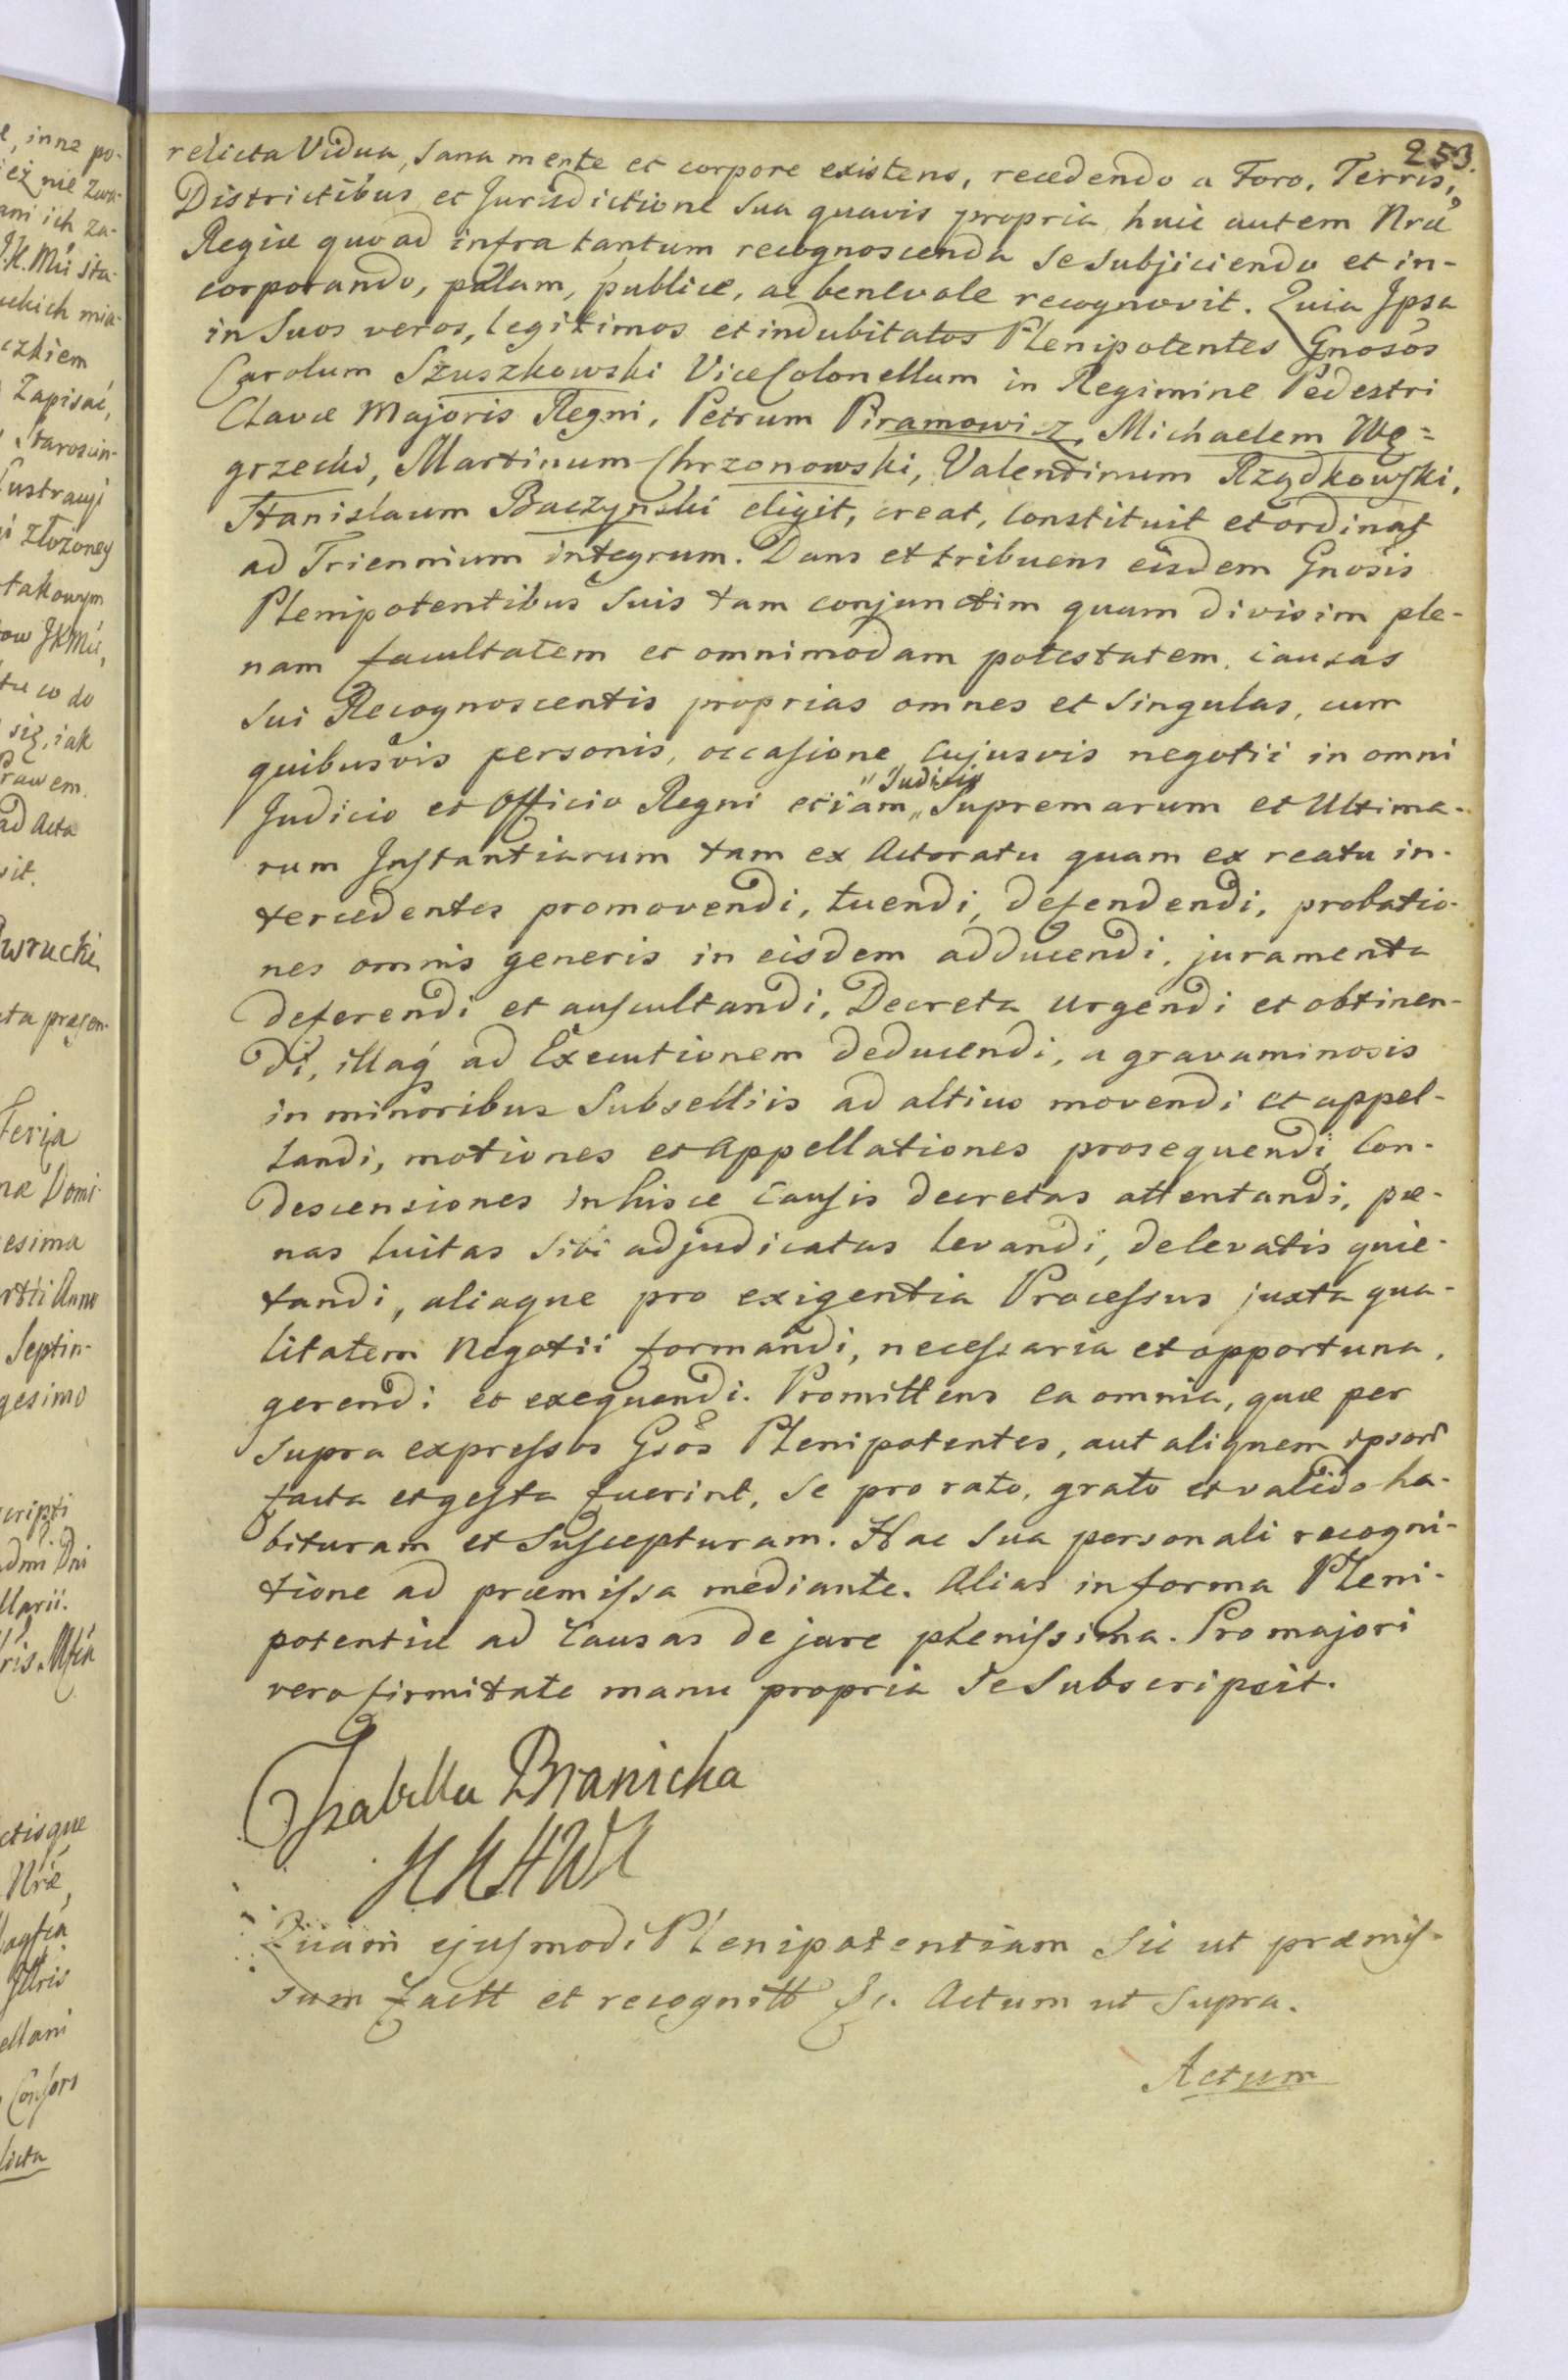 253.
relicta Vidua, sana mente et corpore existens, recedendo a Foro, Terris,
Districtibus et Jurisdictione sua quavis propria, huic autem Nræ
Regiæ quoad infra tantum recognoscenda se subjiciendo et in-
corporando, palam, publice, ac benevole recognovit. Quia Ipsa
in suos veros, legitimos et indubitatos Plenipotentes Gnosos
Carolum Szuszkowski ViceColonellum in Regimine Pedestri
Clavæ Majoris Regni, Petrum Piramowicz, Michaelem Wę=
grzecki, Martinum Chrzonowski, Valentinum Rządkowski,
Stanislaum Baczynski eligit, creat, constituit et ordinat
ad Triennium integrum. Dans et tribuens eisdem Gnosis
Plenipotentibus suis tam conjunctim quam divisim ple-
nam facultatem et omnimodam potestatem, causas
sui Recognoscentis proprias omnes et singulas, cum
quibusvis personis, occasione cujusvis negotii in omni
Judicio et Officio Regni etiam „Judicio„ Supremarum et Ultima-
rum Instantiarum tam ex Actoratu quam ex reatu in-
tercedentes promovendi, tuendi, defendendi, probatio-
nes omnis generis in eisdem adducendi, juramenta
deferendi et auscultandi, Decreta urgendi et obtinen-
di, illaq́ ad Executionem deducendi, a gravaminosis
in minoribus Subselliis ad altius movendi et appel-
landi, motiones et Appellationes prosequendi, Con-
descensiones in hisce Causis decretas attentandi, pæ-
nas luitas sibi adjudicatas levandi, de levatis quie-
tandi, aliaque pro exigentia Processus juxta qua-
litatem Negotii formandi, necessaria et opportuna,
gerendi et exequendi. Promittens ea omnia, quæ per
supra expressos Gsos Plenipotentes, aut aliquem ipsorum
facta et gesta fuerint, se pro rato, grato et valido ha-
bituram et suscepturam. Hac sua personali recogni-
tione ad præmissa mediante. Alias in forma Pleni-
potentiæ ad Causas de jure plenissima. Pro majori
vero firmitate manu propria se subscripsit.
Izabella Branicka
KKHWK
Quam ejusmodi Plenipotentiam sic ut præmis-
sum factt et recognitt &c. Actum ut supra.
Actum